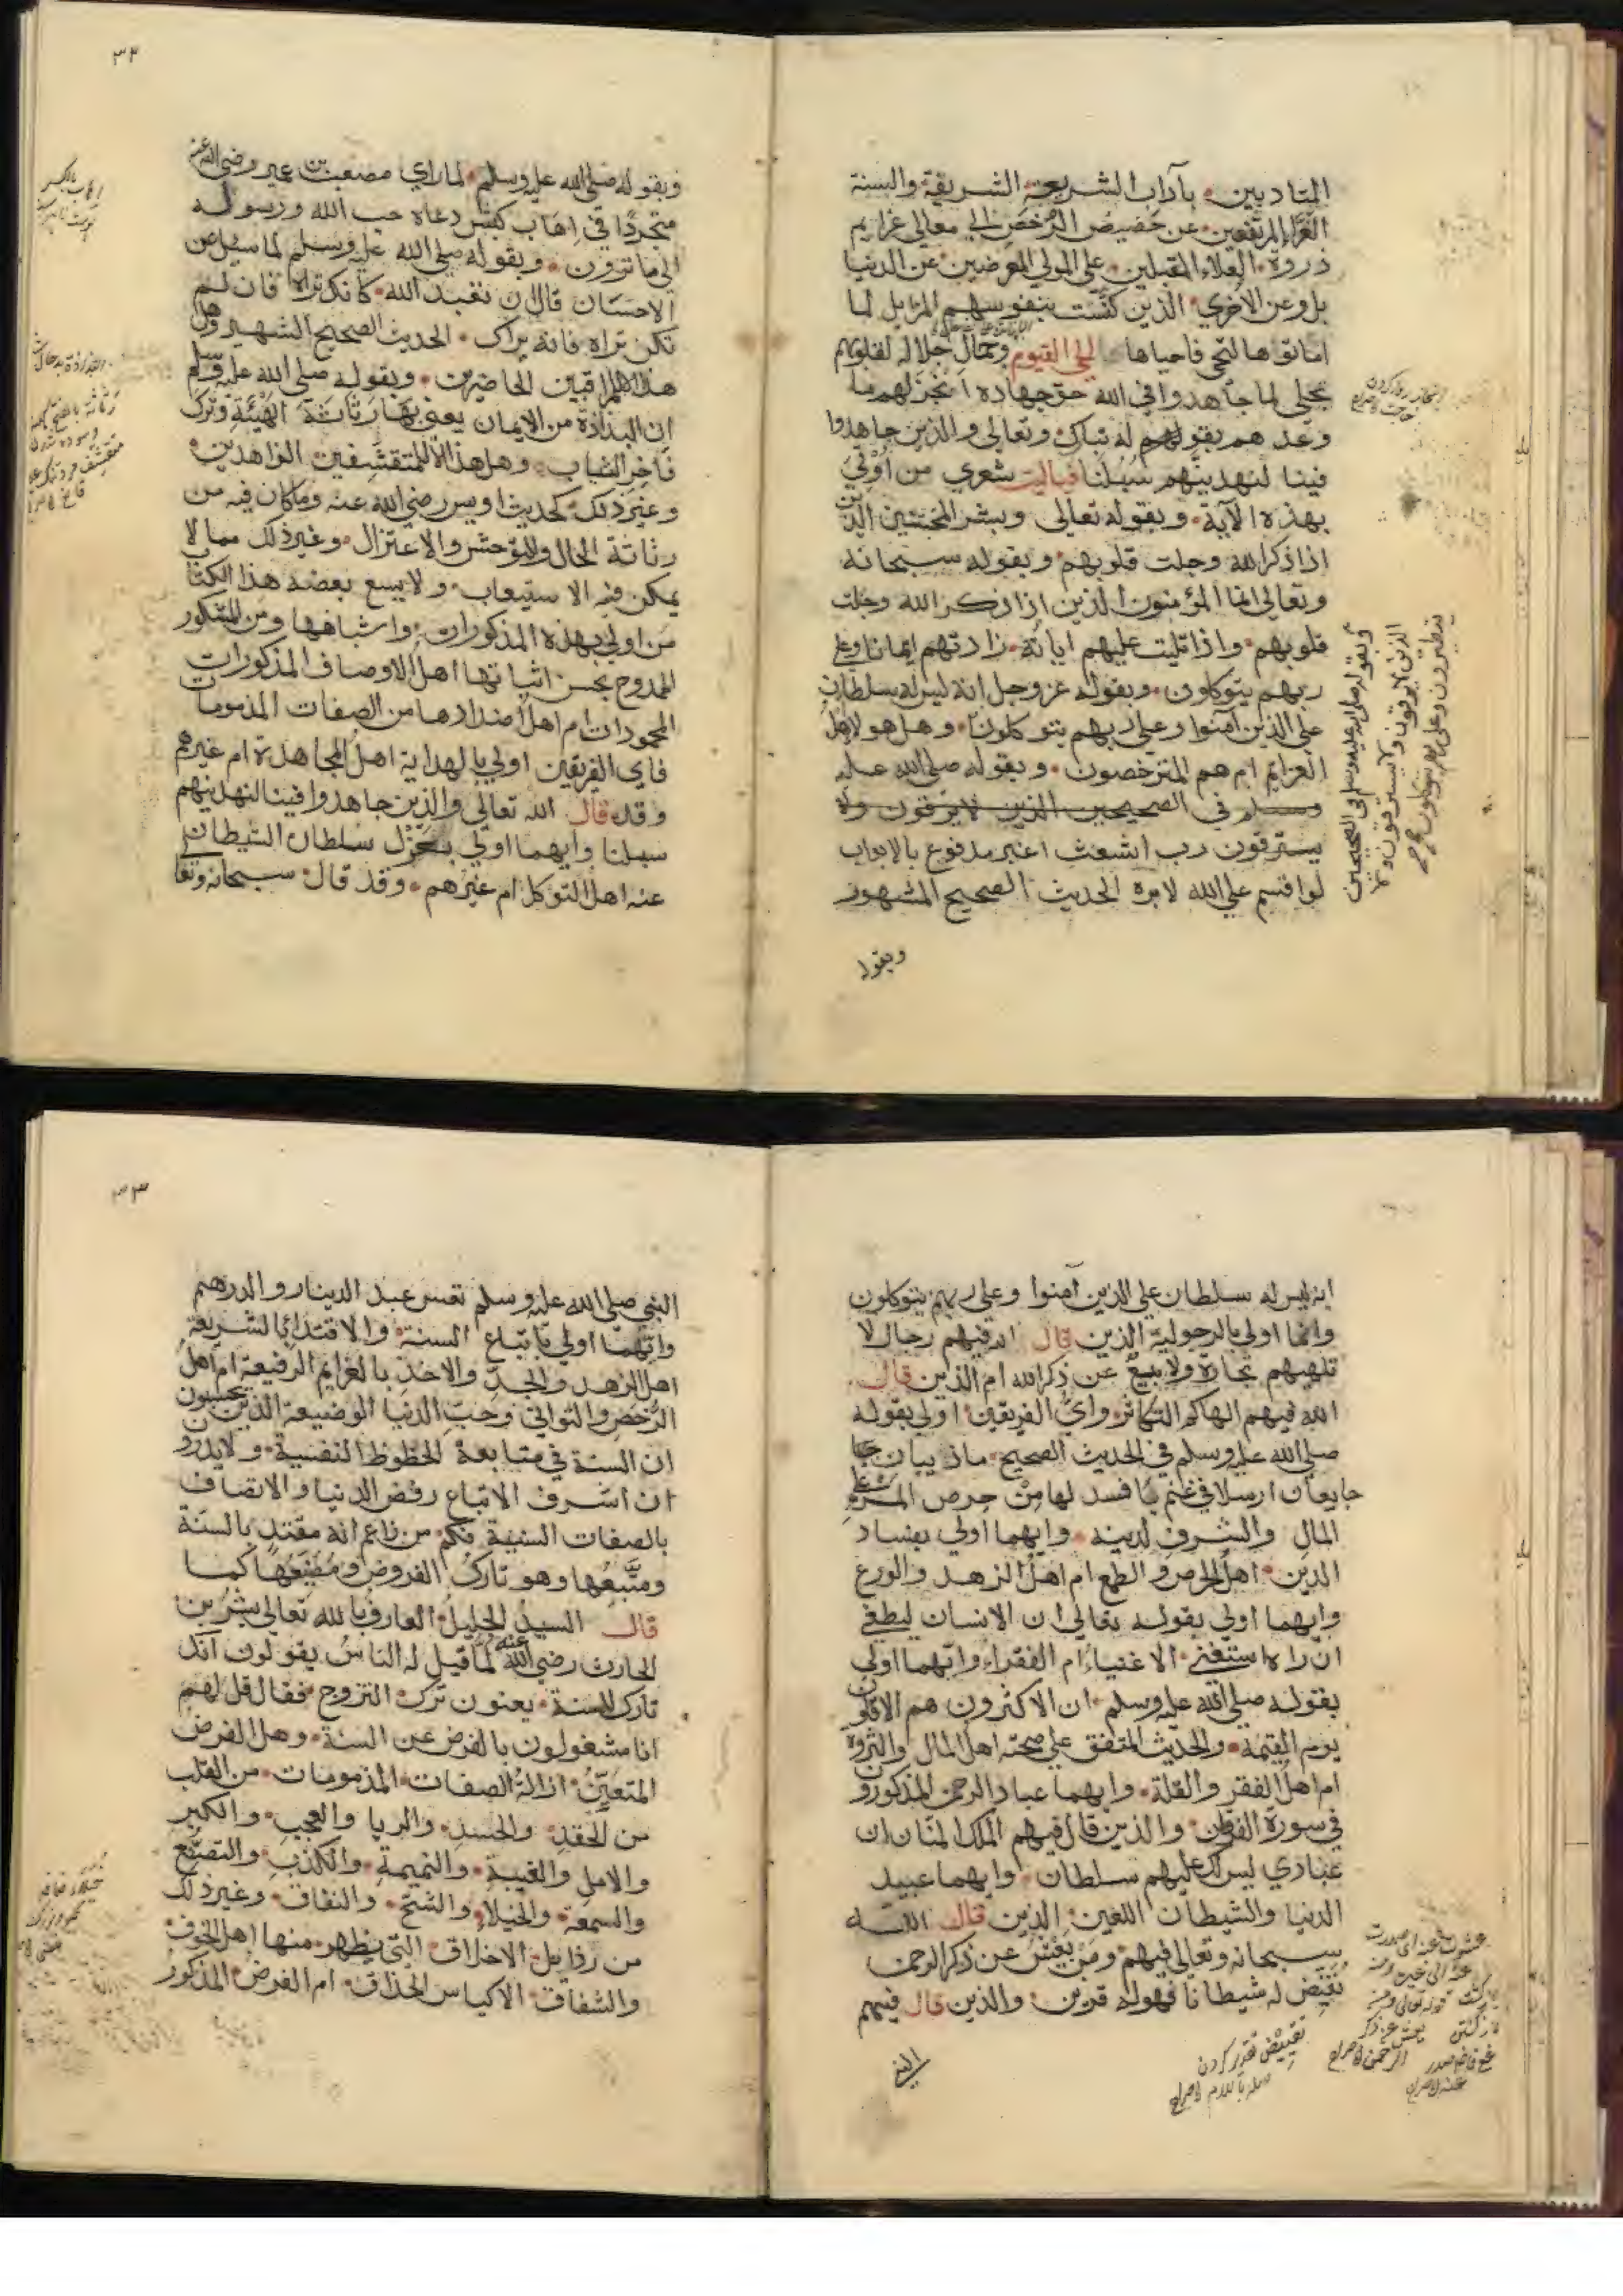 المتادبين بآداب الشريعة الشريفة والسنة
الغراء المرتفعين عن حضيض الرخص الى معالي عزايم
ذروة العلاء المقبلين على المولي المعرضين عن الدنيا
بل وعن الاخري الذين كنست بنفوسهم المزابل لما
اماتوها لتحي فاحياها الحي القيوم وجمال جلاله لقلوبهم
تجلي لما جاهدوا في الله حق جهاده انجز لهم ما
وعدهم بقوله تبارك وتعالي والذين جاهدوا
فينا لنهدينهم سبلنا فياليت شعري من اولي
بهذه الآية وبقوله تعالى وبشر المخبتين الذين
اذا ذكر الله وجلت قلوبهم وبقوله سبحانه
وتعالي انما المؤمنون الذين اذا ذكر الله وجلت
قلوبهم واذا تليت عليهم اياته زادتهم ايمانا وعلي
ربهم يتوكلون وبقوله عز وجل انه ليس له سلطان
على الذين آمنوا وعلي ربهم يتوكلون وهل هو لاهل
العزايم ام هم المترخصون وبقوله صلى الله عليه
وسلم في الصحيحين الذين لا يرقون ولا
يسترقون رب اشعث اغبر مدفوع بالابواب
لو اقسم على الله لابره الحديث الصحيح المشهور
وبقوله
وبقوله صلى الله عليه وسلم في الصحيحين
الذين لا يرقون ولا يسترقون ولا
يتطيرون وعلى ربهم يتوكلون
٣٢
وبقوله صلى الله عليه وسلم لما راي مصعب بن عمير رضي الله عنه
متجردًا في اهاب كبش دعاه حب الله ورسوله
الى ما ترون وبقوله صلى الله عليه وسلم لما سيل عن
الاحسان قال ان تعبد الله كانك تراه فان لم
تكن تراه فانه يراك الحديث الصحيح الشهير وهل
هذا الا للمراقبين الحاضرين وبقوله صلى الله عليه وسلم
ان البذاذة من الايمان يعني بها رثاثة الهيئة وترك
فاخر الثياب وهل هذا الا للمتقشفين الزاهدين
وغير ذلك كحديث اويس رضي الله عنه وما كان فيه من
رثاثة الحال والتوحش والاعتزال وغير ذلك مما لا
يمكن فيه الاستيعاب ولا يسع بعضه هذا الكتاب
من اولي بهذه المذكورات واشباهها ومن المشكور
الممدوح بحسن اثباتها اهل الاوصاف المذكورات
المحمودات ام اهل اضدادها من الصفات المذمومات
فاي الفريقين اولي بالهداية اهل المجاهدة ام غيرهم
وقد قال الله تعالي والذين جاهدوا فينا لنهدينهم
سبلنا وايهما اولي بعزل سلطان الشيطان
عنه اهل التوكل ام غيرهم وقد قال سبحانه وتعا
انه ليس له سلطان على الذين آمنوا وعلى ربهم يتوكلون
وانما اولي بالرجولية الذين قال الله فيهم رجال لا
تلهيهم تجارة ولا بيع عن ذكر الله ام الذين قال
الله فيهم الهاكم التكاثر واي الفريقين اولي بقوله
صلى الله عليه وسلم في الحديث الصحيح ما ذيبان
جايعان ارسلا في غنم بافسد لها من حرص المرء على
المال والشرف لدينه وايهما اولي بفساد
الدين اهل الحرص والطمع ام اهل الزهد والورع
وايهما اولي بقوله تعالي ان الانسان ليطغي
ان راه استغني الاغنياء ام الفقراء وايهما اولي
بقوله صلى الله عليه وسلم ان الاكثرون هم الاقلون
يوم القيمة والحديث المتفق على صحته اهل المال والثروة
ام اهل الفقر والقلة وايهما عباد الرحمن المذكورون
في سورة الفرقان والذين قال فيهم الملك المنان ان
عبادي ليس لك عليهم سلطان وايهما عبيد
الدنيا والشيطان اللعين الذين قال الله
سبحانه وتعالي فيهم ومن يعش عن ذكر الرحمن
نقيض له شيطانا فهو له قرين والذين قال فيهم
النبي
٣٣
النبي صلى الله عليه وسلم تعس عبد الدينار والدرهم
وايهما اولي باتباع السنة والاقتداء بالشريعة
اهل الزهد والجد والاخذ بالعزايم الرفيعة ام اهل
الرخص والتواني وحب الدنيا الوضيعة الذين يحسبون
ان السنة في متابعة الحظوظ النفسية ولا يدرون
ان اشرف الاتباع رفض الدنيا والاتصاف
بالصفات السنية فكم من زاعم انه مقتد بالسنة
ومتبعها وهو تارك الفروض ومضيعها كما
قال السيد الجليل العارف بالله تعالي بشر بن
الحارث رضي الله عنه لما قيل له الناس يقولون انك
تارك للسنة يعنون ترك التزوج فقال قل لهم
انا مشغول بالفرض عن السنة وهل الفرض
المتعين ازالة الصفات المذمومات من القلب
من الحقد والحسد والريا والعجب والكبر
والامل والغيبة والنميمة والكذب والتصنع
والسمعة والخيلاء والشح والنفاق وغير ذلك
من رذايل الاخلاق التي يطهر منها اهل الخوف
والشفاق الاكياس الحذاق ام الفرض المذكور